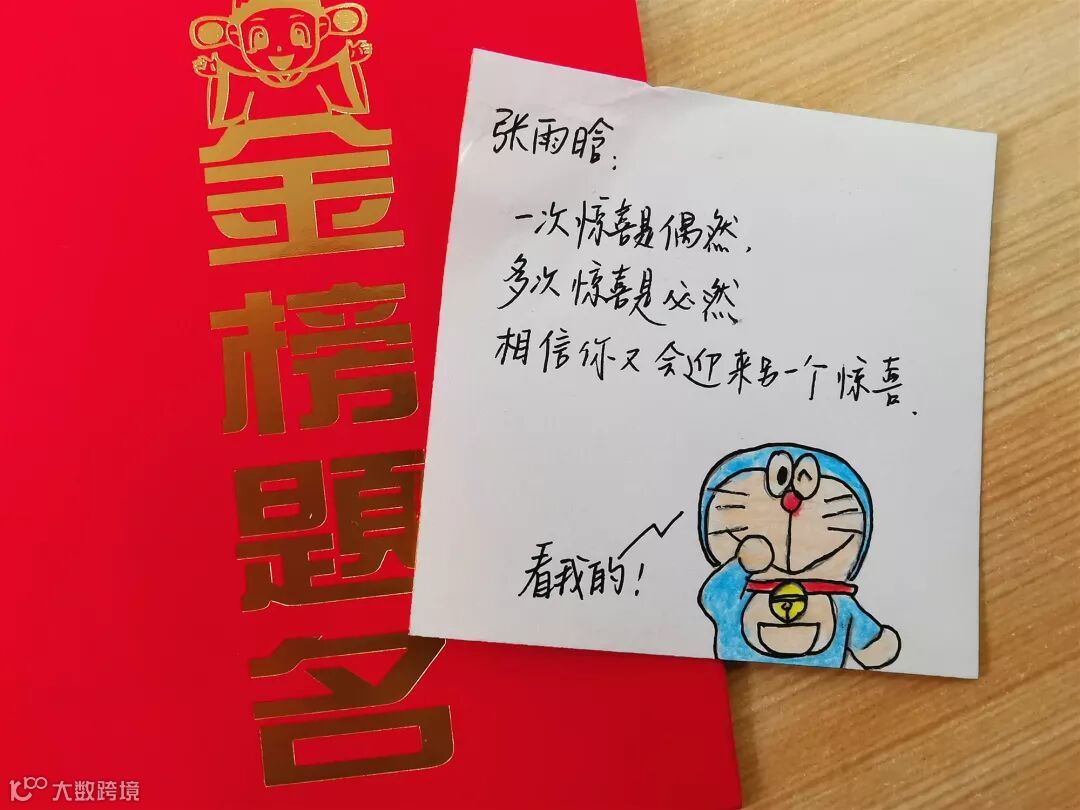 金榜题名
张雨晗：
一次惊喜是偶然，
多次惊喜是必然
相信你又会迎来另一个惊喜.
看我的！
大数跨境